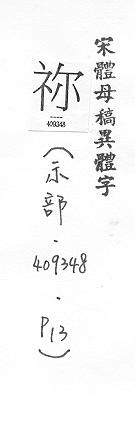 宋體母稿異體字
祢
409348
（示部．409348．P13）